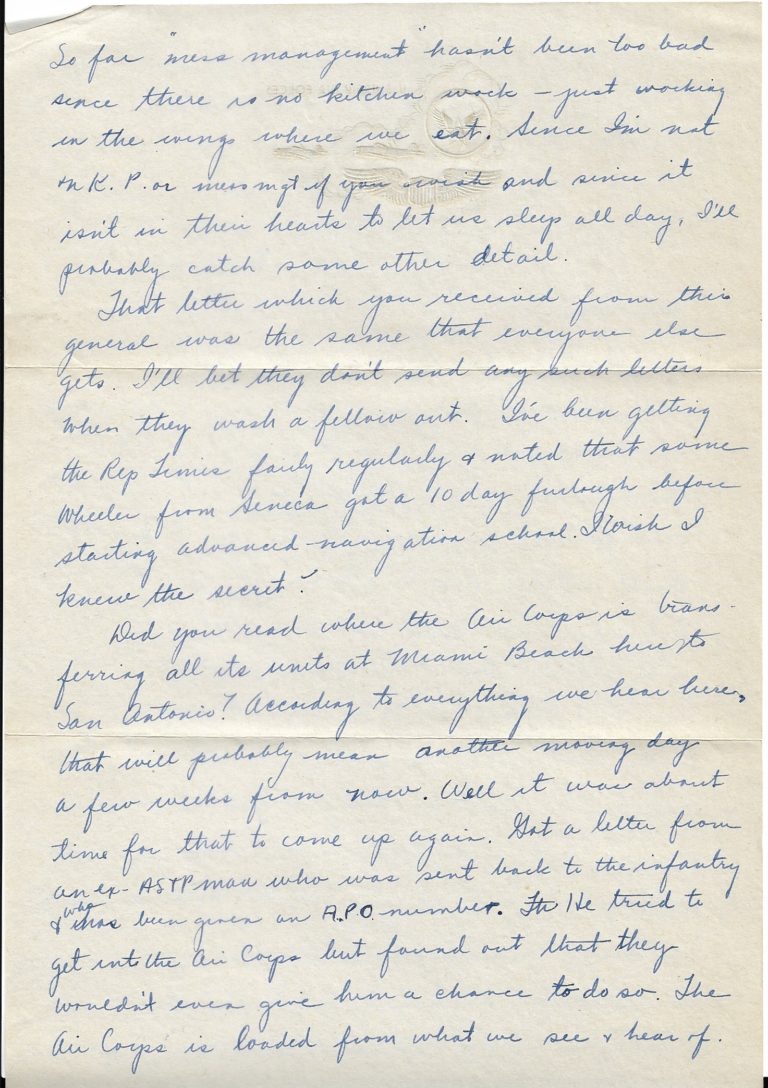 So far "mess management" hasn't been too bad
since there is no kitchen work – just working
in the wings where we eat. Since I'm not
on K. P. or mess mgt if you wish and since it
isn't in their hearts to let us sleep all day, I'll
probably catch some other detail.
That letter which you received from the
general was the same that everyone else
gets. I'll bet they don't send any such letters
when they wash a fellow out. I've been getting
the Rep Times fairly regularly & noted that some
Wheeler from Seneca got a 10 day furlough before
starting advanced navigation school. I wish I
knew the secret!
Did you read where the Air Corps is trans-
ferring all its units at Miami Beach here to
San Antonio? According to everything we hear here,
that will probably mean another moving day
a few weeks from now. Well it was about
time for that to come up again. Got a letter from
an ex-ASTP man who was sent back to the infantry
& who has been given an A.P.O. number. He tried to
get into the Air Corps but found out that they
wouldn't even give him a chance to do so. The
Air Corps is loaded from what we see & hear of.